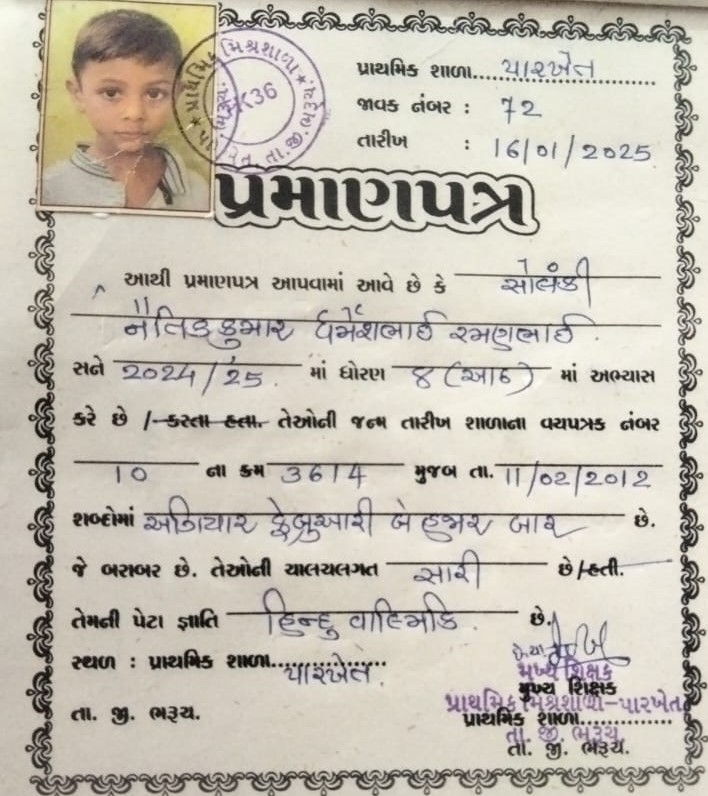 પ્રાથમિક શાળા....પારખેત
જાવક નંબર : 72
તારીખ : 16/01/2025
પ્રમાણપત્ર
આથી પ્રમાણપત્ર આપવામાં આવે છે કે સોલંકી
નૈતિકકુમાર ધર્મેશભાઈ રમણભાઈ
સને 2024/25 માં ધોરણ ૪ (આઠ) માં અભ્યાસ
કરે છે / કરતા હતા. તેઓની જન્મ તારીખ શાળાના વયપત્રક નંબર
10 ના ક્રમ 3614 મુજબ તા. 11/02/2012
શબ્દોમાં અગિયાર ફેબ્રુઆરી બે હજાર બાર છે.
જે બરાબર છે. તેઓની ચાલચલગત સારી છે/હતી.
તેમની પેટા જ્ઞાતિ હિન્દુ વાલ્મિકિ છે.
સ્થળ : પ્રાથમિક શાળા....પારખેત.
મુખ્ય શિક્ષક
મુખ્ય શિક્ષક
પ્રાથમિક મિશ્રશાળા-પારખેત
તા. જી. ભરૂચ.
પ્રાથમિક શાળા..............
તા. જી. ભરૂચ
તા. જી. ભરૂચ.